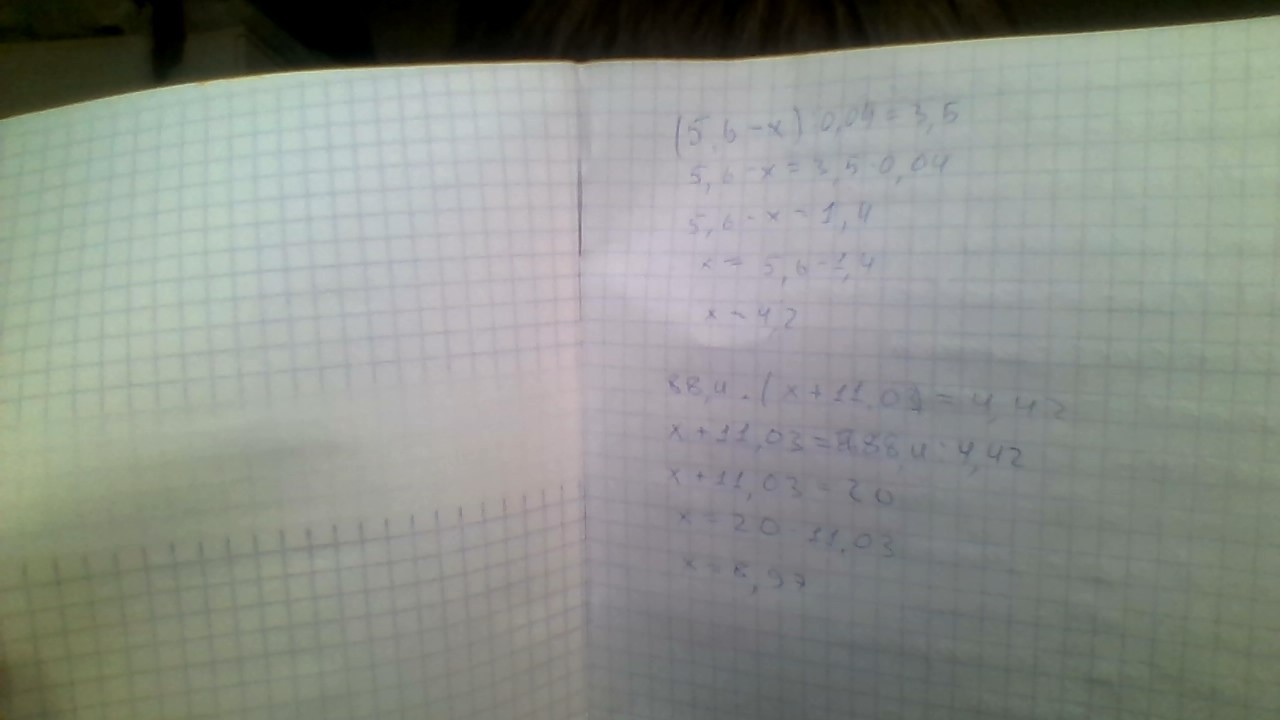 (5,6-x) 0,04=3,5
5,6-x=3,5·0,04
5,6-x=1,4
x= 5,6-1,4
x=4,2
88,4:(x+11,03)=4,42
x+11,03= 88,4:4,42
x+11,03=20
x=20-11,03
x=8,97